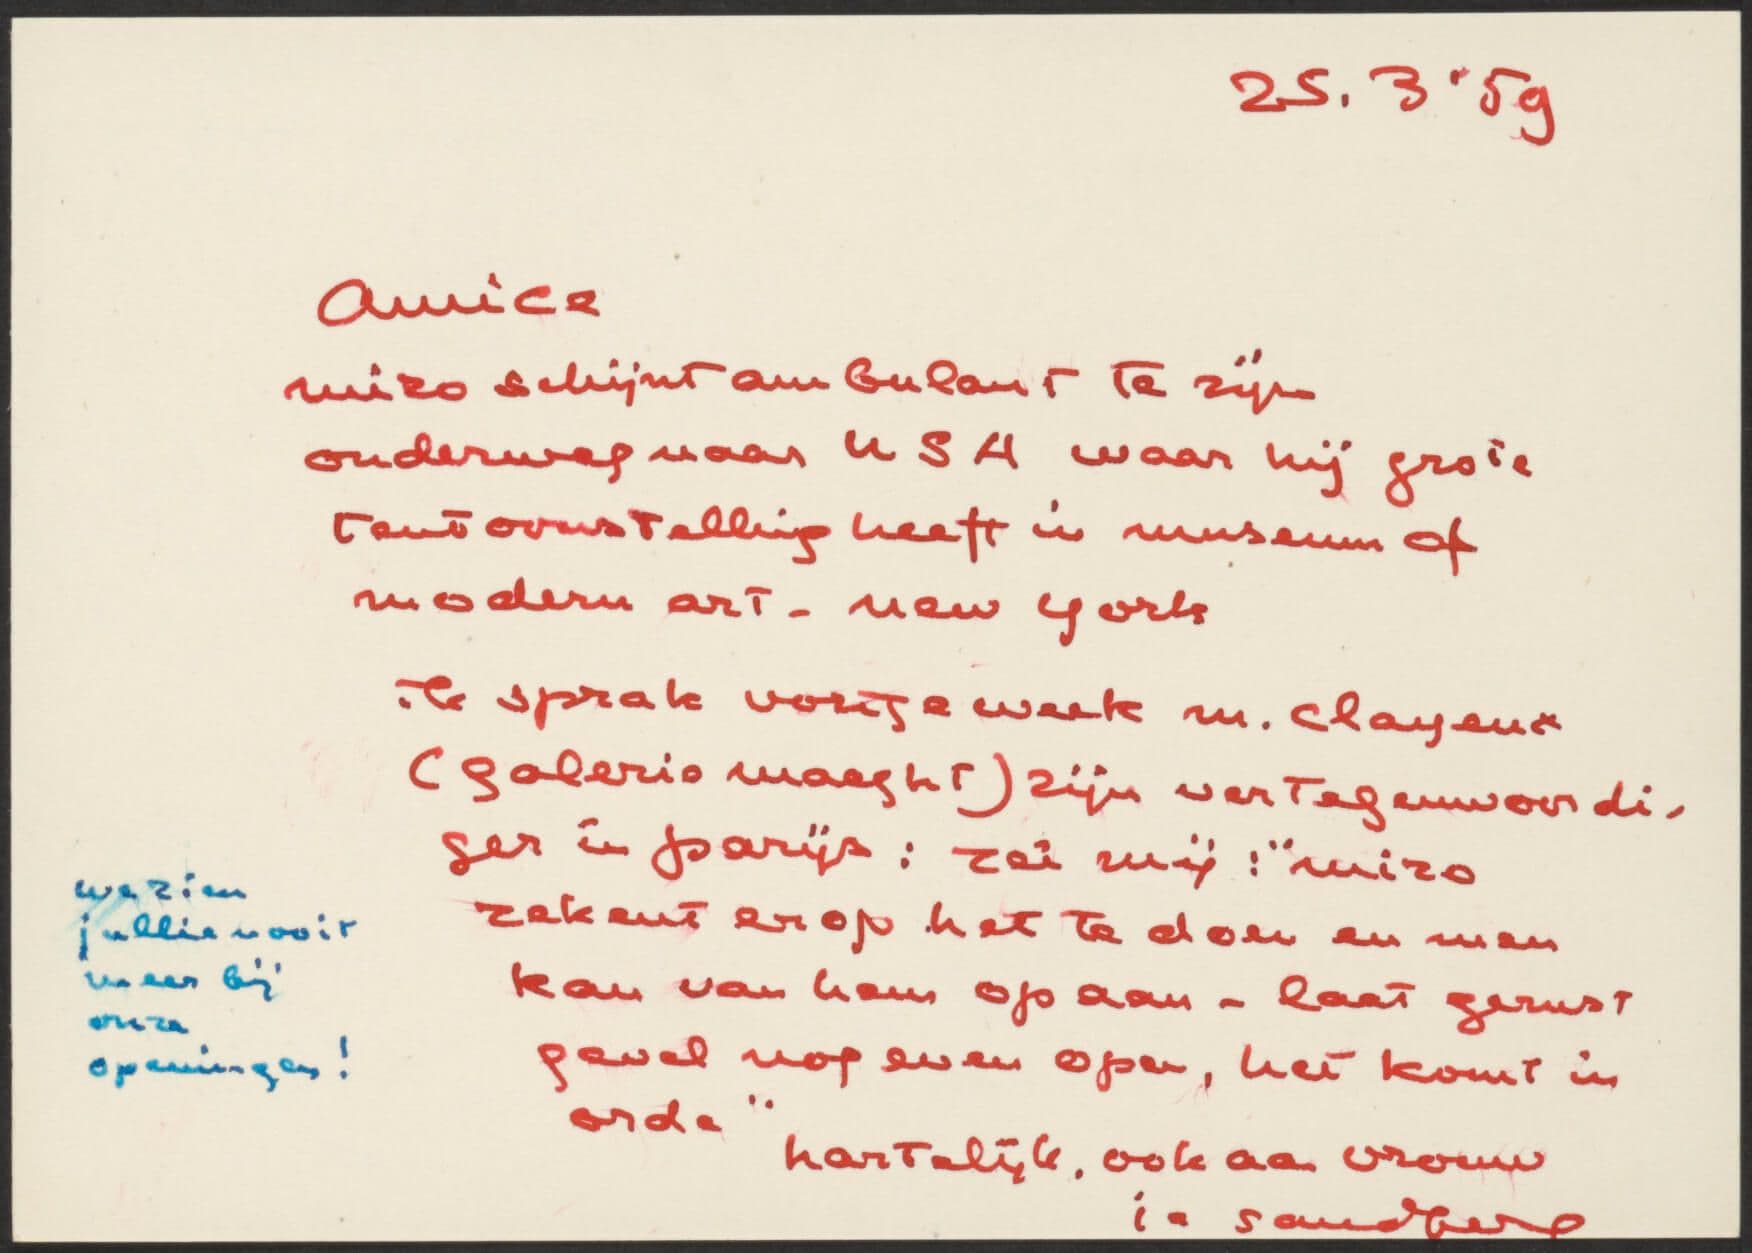 25.3.'59
amice
miro schijnt ambulant te zijn
onderweg naar USA waar hij grote
tentoonstelling heeft in museum of
modern art - new york
ik sprak vorige week m. clayeux
(galerie maeght) zijn vertegenwoordi-
ger in parijs: zei mij: "miro
rekent erop het te doen en men
kan van hem op aan - laat gerust
gevel nog even open, het komt in
orde"
hartelijk, ook aan vrouw
je sandberg
we zien
jullie nooit
meer bij
onze
openingen!